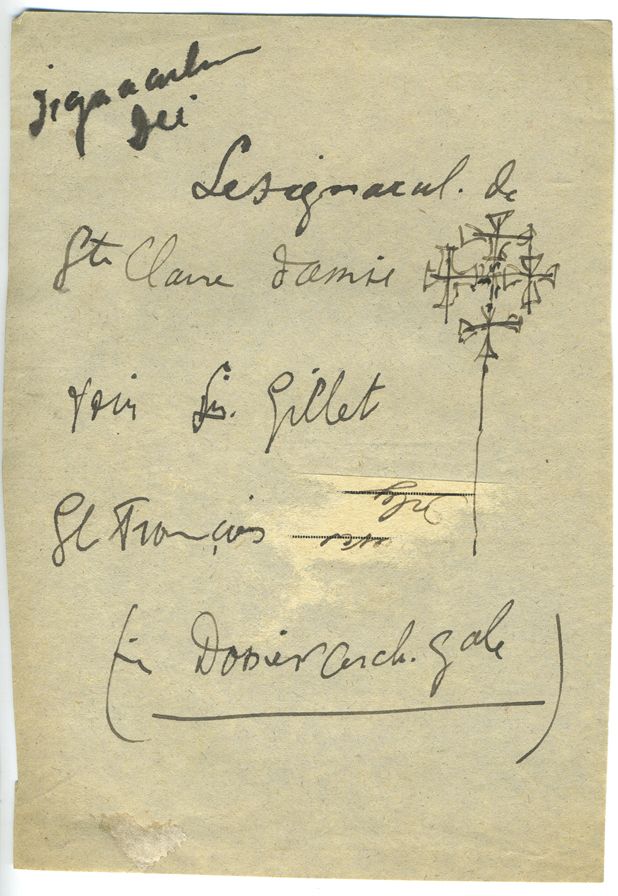 signaculum
Dei
Le signacul. de
Ste Claire d'Amise
voir Gillet
St François
(in Dossier arch. gale)